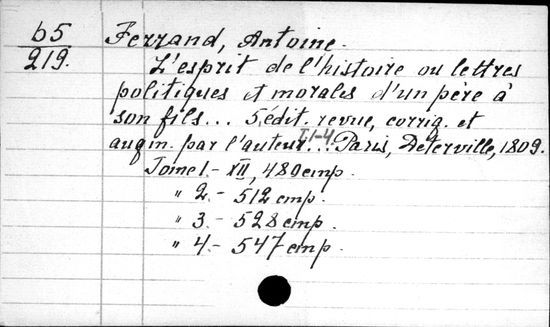 b5
219.
Ferrand, Antoine.
L'esprit de l'histoire ou lettres
politiques et morales d'un père à
son fils... 5 édit. revue, corrig. et
augm. par l'auteur... T.1-4 Paris, Deterville, 1809.
Tome 1.- XII, 480 cmp.
" 2.- 512 cmp.
" 3.- 528 cmp.
" 4.- 547 cmp.